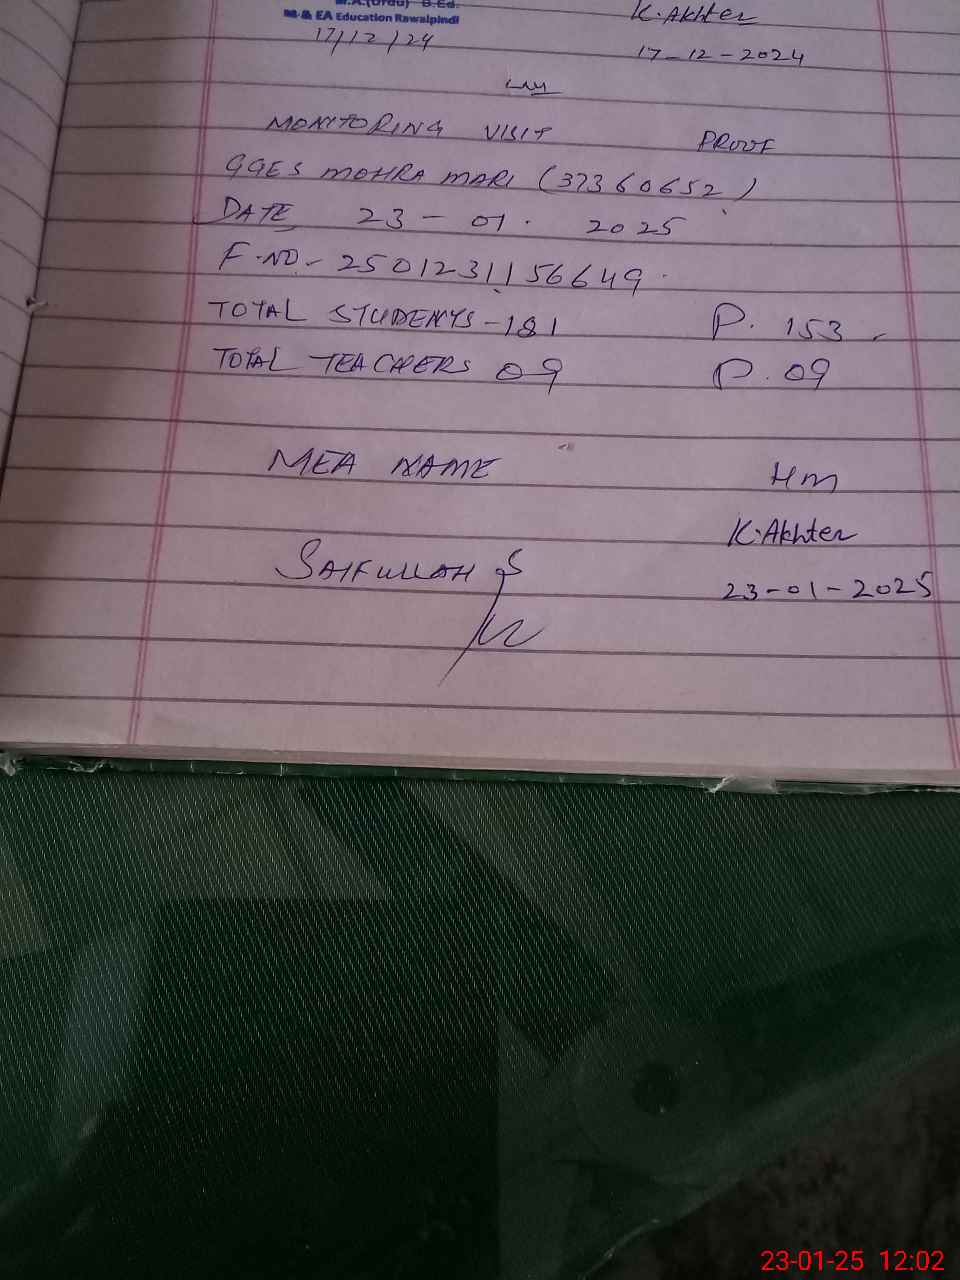 M.A.(Urdu) B.Ed.
M & EA Education Rawalpindi
17/12/24
K.Akhter
17-12-2024
MONITORING VISIT PROOF
GGES MOHRA MARI (37360652)
DATE 23-01. 2025
F.NO- 2501231156649.
TOTAL STUDENTS-181 P. 153
TOTAL TEACHERS 09 P.09
MEA NAME HM
K.Akhter
SAIFULLAH S
23-01-2025
23-01-25 12:02